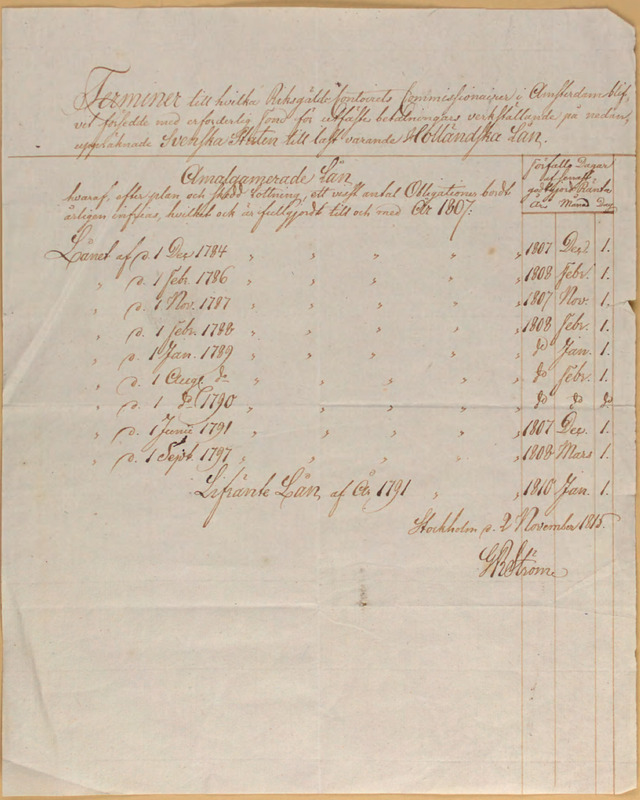 Terminer till hvilka Riksgälds Contoirets Commissionairer i Amsterdam blif-
vit försedde med erforderlig fond för utfäste betalningars verkställande, på nedan,
uppräknade Svenska Staten till last varande Holländska Lån.
Amalgamerade Lån,
hvaraf, efter plan och skedd lottning, ett visst antal Obligationer bordt
årligen infrias, hvilket ock är fullgjordt till och med År 1807:
Förfallo Dagar
för senast
godtgjort Ränta
År. Månad Dag
Lånet af d. 1 Dec. 1784 " " " " " 1807 Dec. 1.
" d. 1 Febr. 1786 " " " " " 1808 Febr. 1.
" d. 1 Nov. 1787 " " " " " 1807 Nov. 1.
" d. 1 Febr. 1788 " " " " " 1808 Febr. 1.
" d. 1 Jan. 1789 " " " " " do Jan. 1.
" d. 1 Aug. do " " " " " do Febr. 1.
" d. 1 do 1790 " " " " " do do do
" d. 1 Junii 1791 " " " " " 1807 Dec. 1.
" d. 1 Sept. 1797 " " " " " 1808 Mars 1.
Lifränte Lån, af År 1791 " " 1810 Jan. 1.
Stockholm d. 2 November 1815.